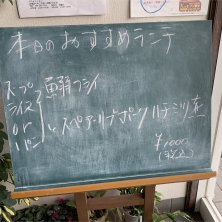 本日のおすすめランチ
スープ
ライス
or
パン
鮮魚フライ
スペアーリブポーク ハチミツ煮
¥1000
(税込)